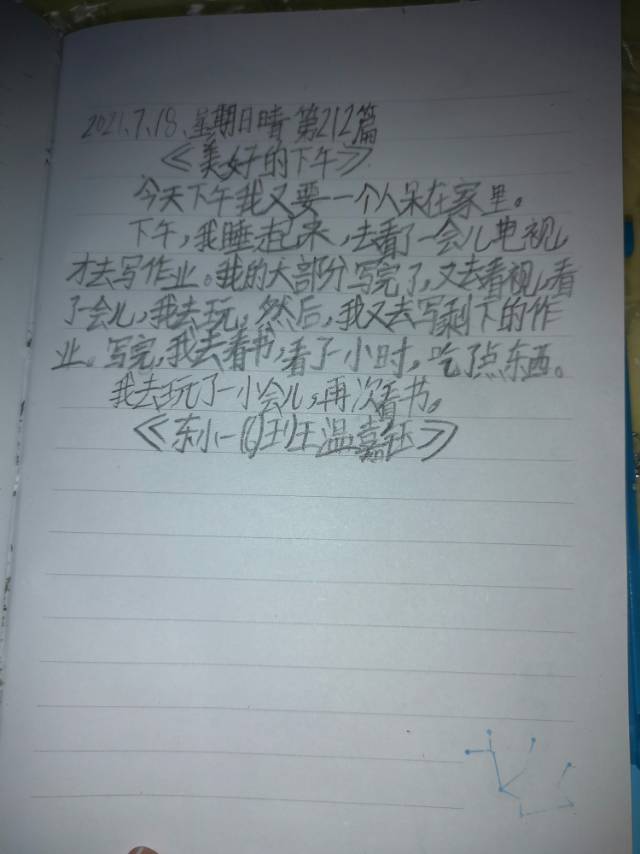 2021.7.18.星期日晴 第212篇
《美好的下午》
今天下午我又要一个人呆在家里。
下午,我睡起来,去看了一会儿电视,
才去写作业。我的大部分写完了,又去看视,看
了一会儿,我去玩,然后,我又去写剩下的作
业。写完,我去看书,看了一小时,吃了点东西。
我去玩了一小会儿,再次看书。
《东小一()王温嘉钰》